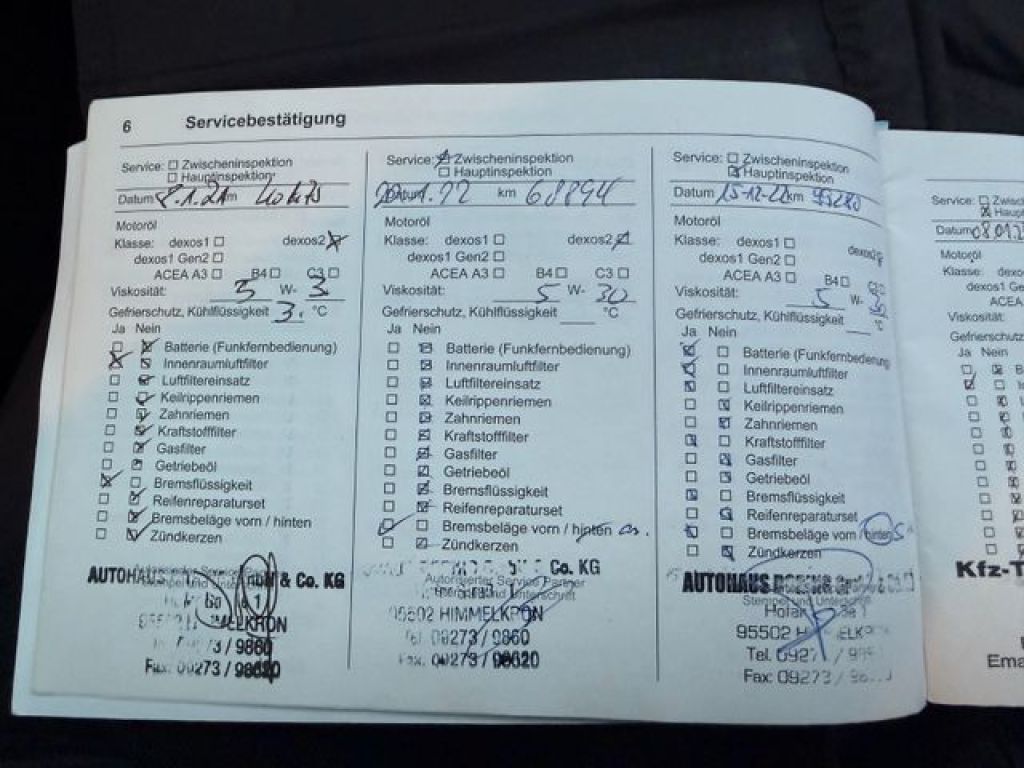 6 Servicebestätigung
Service: ☐ Zwischeninspektion
☐ Hauptinspektion
Datum 8.1.21 km
Motoröl
Klasse: dexos1 ☐ dexos2 ☒
dexos1 Gen2 ☐
ACEA A3 ☐ B4 ☐ C3 ☐
Viskosität: 5 W- 3
Gefrierschutz, Kühlflüssigkeit 3. °C
Ja Nein
☐ ☒ Batterie (Funkfernbedienung)
☒ ☒ Innenraumluftfilter
☐ ☒ Luftfiltereinsatz
☐ ☒ Keilrippenriemen
☐ ☒ Zahnriemen
☐ ☒ Kraftstofffilter
☐ ☒ Gasfilter
☐ ☒ Getriebeöl
☒ ☐ Bremsflüssigkeit
☐ ☒ Reifenreparaturset
☐ ☒ Bremsbeläge vorn / hinten
☐ ☒ Zündkerzen
AUTOHAUS & Co. KG
1
HIMMELKRON
/ 9860
Fax: 09273 / 98620
Service: ☒ Zwischeninspektion
☐ Hauptinspektion
1.22 km 68894
Motoröl
Klasse: dexos1 ☐ dexos2 ☒
dexos1 Gen2 ☐
ACEA A3 ☐ B4 ☐ C3 ☐
Viskosität: 5 W- 30
Gefrierschutz, Kühlflüssigkeit ____ °C
Ja Nein
☐ ☒ Batterie (Funkfernbedienung)
☐ ☒ Innenraumluftfilter
☐ ☒ Luftfiltereinsatz
☐ ☒ Keilrippenriemen
☐ ☒ Zahnriemen
☐ ☒ Kraftstofffilter
☐ ☒ Gasfilter
☐ ☒ Getriebeöl
☐ ☒ Bremsflüssigkeit
☐ ☒ Reifenreparaturset
☒ ☐ Bremsbeläge vorn / hinten
☐ ☒ Zündkerzen
& Co. KG
Autorisierter Service Partner
95502 HIMMELKRON
Tel. 09273 / 9860
Fax: 09273 / 98620
Service: ☐ Zwischeninspektion
☒ Hauptinspektion
Datum 15-12-22 km 95280
Motoröl
Klasse: dexos1 ☐ dexos2
dexos1 Gen2 ☐
ACEA A3 ☐ B4 ☐ C3 ☐
Viskosität: 5 W- 30
Gefrierschutz, Kühlflüssigkeit ____ °C
Ja Nein
☒ ☐ Batterie (Funkfernbedienung)
☒ ☐ Innenraumluftfilter
☒ ☐ Luftfiltereinsatz
☐ ☒ Keilrippenriemen
☐ ☒ Zahnriemen
☒ ☐ Kraftstofffilter
☐ ☒ Gasfilter
☐ ☒ Getriebeöl
☒ ☐ Bremsflüssigkeit
☐ ☒ Reifenreparaturset
☒ ☐ Bremsbeläge vorn / hinten
☐ ☒ Zündkerzen
AUTOHAUS
Stempel und Unterschrift
95502
Tel.
Fax: 09273 /
Service:
Datum
Motoröl
Klasse:
ACEA
Viskosität:
Ja Nein
Kfz-T
Ema